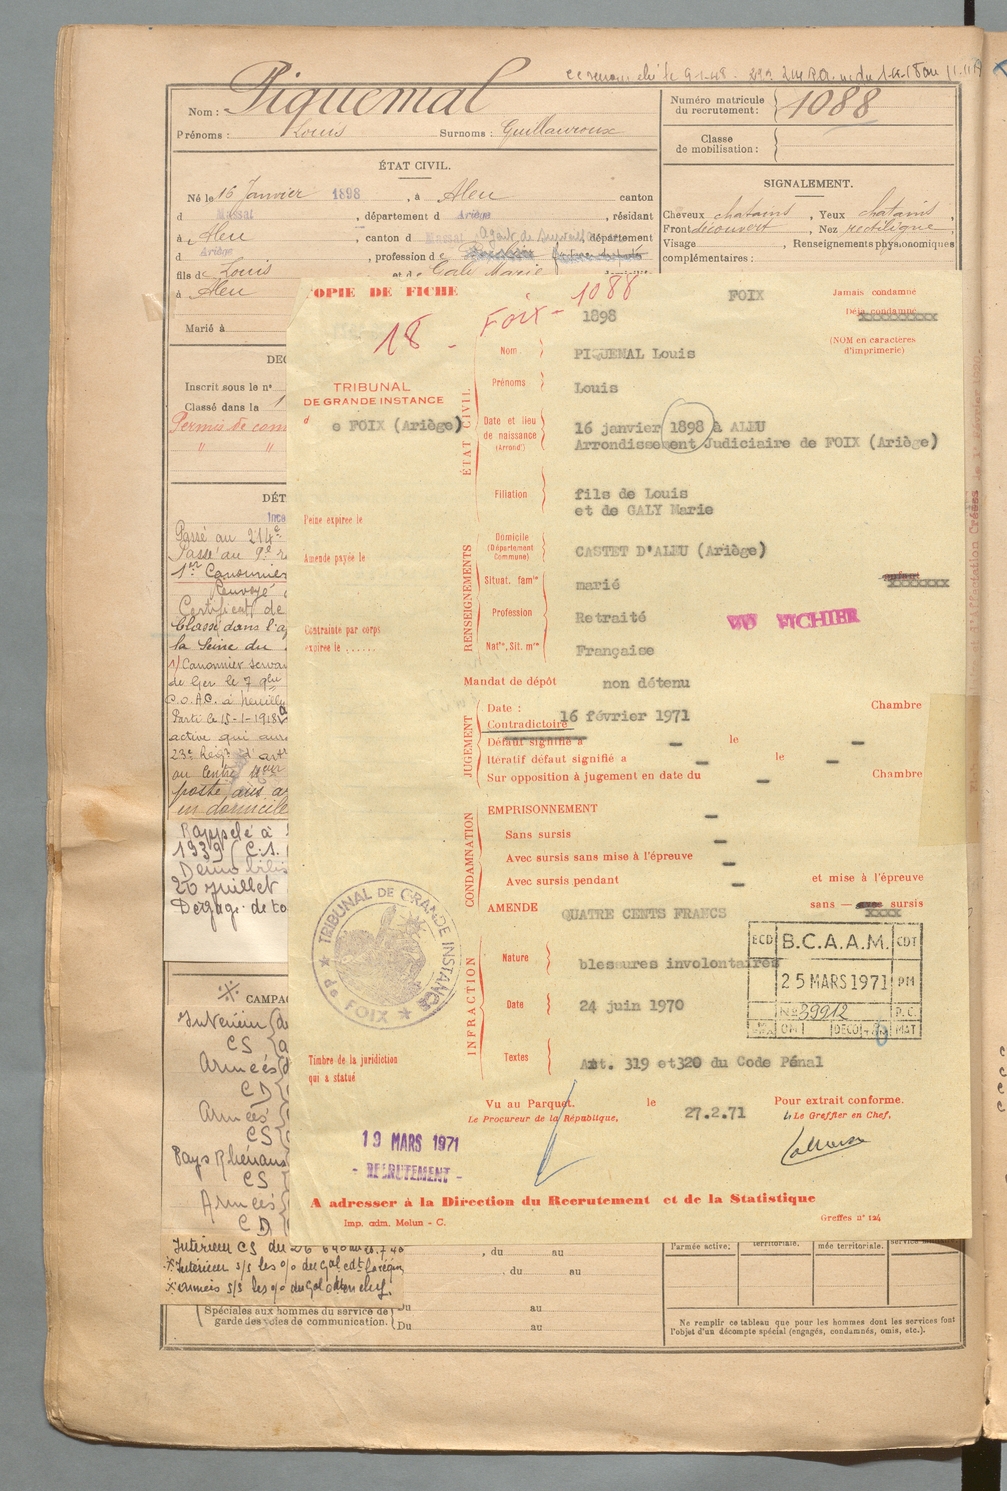 Nom : Piquemal
Prénoms : Louis Surnoms : Guillauroux
Numéro matricule
du recrutement : 1088
Classe
de mobilisation :
ÉTAT CIVIL.
Né le 16 Janvier 1898, à Aleu canton
d Massat, département d Ariège, résidant
à Aleu, canton d Massat département
d Ariège, profession de
fils de Louis et de Galy Marie
à Aleu
Marié à
SIGNALEMENT.
Cheveux chatains, Yeux chatains,
Front découvert, Nez rectiligne,
Visage , Renseignements physionomiques
complémentaires :
Inscrit sous le n°
Classé dans la 1
Permis de con
" "
DÉT
Passé au 214e
Passé au 9e r
1er Canonnier
Renvoyé
Certificat de
Classé dans l'a
la Seine du
1) Canonnier serva
de Ger le 7
C.O.A.C. à
Parti le 15-1-1918
active qui
23e Rég
au Centre
poste
un domicile
Rappelé à
1939 (C.1.
Démobilis
20 juillet
Dégagé de to
CAMPAG
Intérieur
CS
Armées
CD
Armées
CS
Pays Rhénans
CS
Armées
CD
COPIE DE FICHE
18 - Foix - 1088
FOIX
1898
Jamais condamné
Déjà condamné
(NOM en caractères
d'imprimerie)
TRIBUNAL
DE GRANDE INSTANCE
d e FOIX (Ariège)
ÉTAT CIVIL
Nom PIQUEMAL Louis
Prénoms Louis
Date et lieu
de naissance
(Arrond')
16 janvier 1898 à ALEU
Arrondissement Judiciaire de FOIX (Ariège)
Filiation fils de Louis
et de GALY Marie
Peine expirée le
Amende payée le
Contrainte par corps
expirée le ......
RENSEIGNEMENTS
Domicile
(Département
Commune)
CASTET D'ALEU (Ariège)
Situat. famle marié
Profession Retraité
VU FICHIER
Natté, Sit. mre Française
Mandat de dépôt non détenu
JUGEMENT
Date : 16 février 1971 Chambre
Contradictoire
Défaut signifié à — le —
Itératif défaut signifié à — le —
Sur opposition à jugement en date du — Chambre
CONDAMNATION
EMPRISONNEMENT —
Sans sursis —
Avec sursis sans mise à l'épreuve —
Avec sursis pendant — et mise à l'épreuve
AMENDE QUATRE CENTS FRANCS sans — sursis
INFRACTION
Nature blessures involontaires
Date 24 juin 1970
Textes Art. 319 et320 du Code Pénal
TRIBUNAL DE GRANDE INSTANCE
de FOIX
ECD B.C.A.A.M. CDT
25 MARS 1971 PM
No 39912 P.C.
OM DECO MAT
Timbre de la juridiction
qui a statué
Vu au Parquet. le 27.2.71 Pour extrait conforme.
Le Procureur de la République, Le Greffier en Chef,
19 MARS 1971
- RECRUTEMENT -
A adresser à la Direction du Recrutement et de la Statistique
Imp. adm. Melun - C.
Greffes n° 124
Intérieur CS du
, du au
. du au
Du au
Du au
Spéciales aux hommes du service de
garde des voies de communication.
l'armée active. territoriale. mée territoriale.
Ne remplir ce tableau que pour les hommes dont les services font
l'objet d'un décompte spécial (engagés, condamnés, omis, etc.).